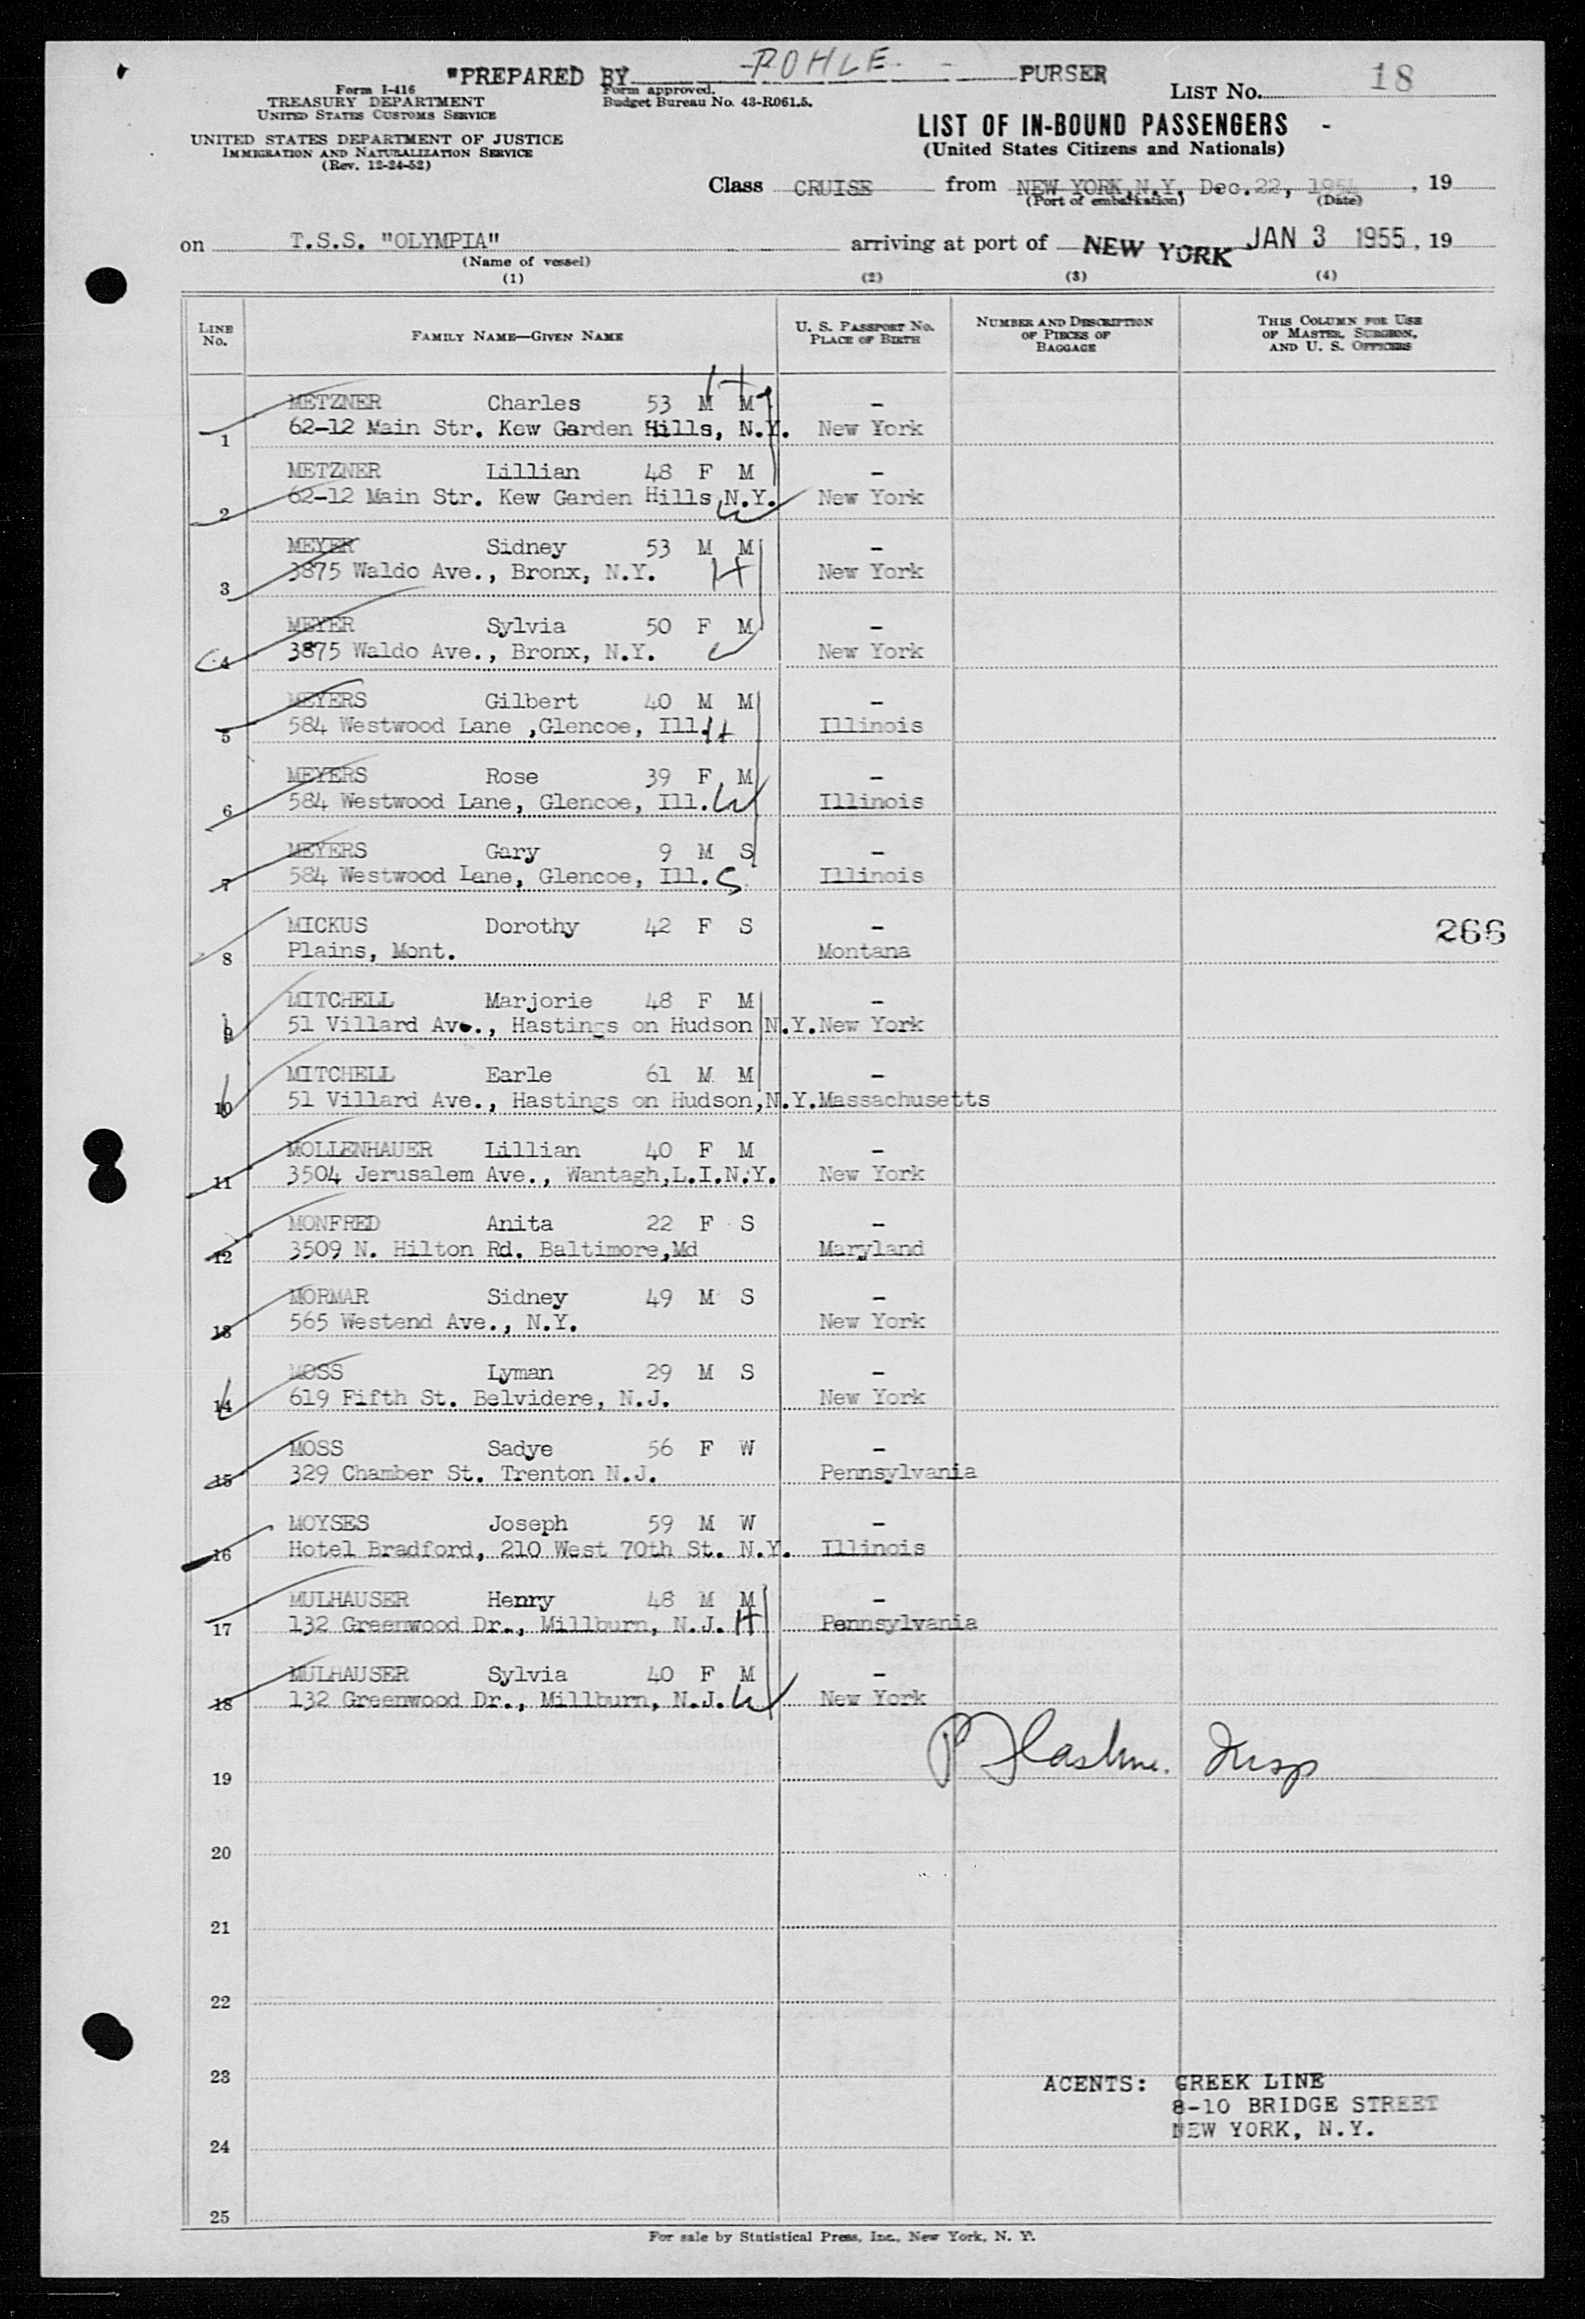 "PREPARED BY -POHLE- PURSER
Form I-416
TREASURY DEPARTMENT
UNITED STATES CUSTOMS SERVICE
Form approved.
Budget Bureau No. 43-R061.5.
LIST NO. 18
UNITED STATES DEPARTMENT OF JUSTICE
IMMIGRATION AND NATURALIZATION SERVICE
(Rev. 12-24-52)
LIST OF IN-BOUND PASSENGERS -
(United States Citizens and Nationals)
Class CRUISE from NEW YORK,N.Y. Dec.22, 1954, 19
(Port of embarkation) (Date)
on T.S.S. "OLYMPIA" arriving at port of NEW YORK JAN 3 1955, 19
(Name of vessel)
(1) (2) (3) (4)
LINE No. FAMILY NAME—GIVEN NAME U. S. PASSPORT NO. PLACE OF BIRTH NUMBER AND DESCRIPTION OF PIECES OF BAGGAGE THIS COLUMN FOR USE OF MASTER, SURGEON, AND U. S. OFFICERS
METZNER Charles 53 M M - H
1 62-12 Main Str. Kew Garden Hills, N.Y. New York
METZNER Lillian 48 F M -
2 62-12 Main Str. Kew Garden Hills,N.Y. W New York
MEYER Sidney 53 M M -
3 3875 Waldo Ave., Bronx, N.Y. H New York
MEYER Sylvia 50 F M -
4 3875 Waldo Ave., Bronx, N.Y. W New York
MEYERS Gilbert 40 M M -
5 584 Westwood Lane ,Glencoe, Ill. H Illinois
MEYERS Rose 39 F M -
6 584 Westwood Lane, Glencoe, Ill. W Illinois
MEYERS Gary 9 M S -
7 584 Westwood Lane, Glencoe, Ill. S Illinois
MICKUS Dorothy 42 F S - 266
8 Plains, Mont. Montana
MITCHELL Marjorie 48 F M -
9 51 Villard Ave., Hastings on Hudson N.Y. New York
MITCHELL Earle 61 M M -
10 51 Villard Ave., Hastings on Hudson,N.Y. Massachusetts
MOLLENHAUER Lillian 40 F M -
11 3504 Jerusalem Ave., Wantagh,L.I.N.Y. New York
MONFRED Anita 22 F S -
12 3509 N. Hilton Rd. Baltimore,Md Maryland
MORMAR Sidney 49 M S -
13 565 Westend Ave., N.Y. New York
MOSS Lyman 29 M S -
14 619 Fifth St. Belvidere, N.J. New York
MOSS Sadye 56 F W -
15 329 Chamber St. Trenton N.J. Pennsylvania
MOYSES Joseph 59 M W -
16 Hotel Bradford, 210 West 70th St. N.Y. Illinois
MULHAUSER Henry 48 M M -
17 132 Greenwood Dr., Millburn, N.J. H Pennsylvania
MULHAUSER Sylvia 40 F M -
18 132 Greenwood Dr., Millburn, N.J. W New York
19 Insp
20
21
22
23 AGENTS: GREEK LINE
8-10 BRIDGE STREET
24 NEW YORK, N.Y.
25
For sale by Statistical Press, Inc., New York, N. Y.